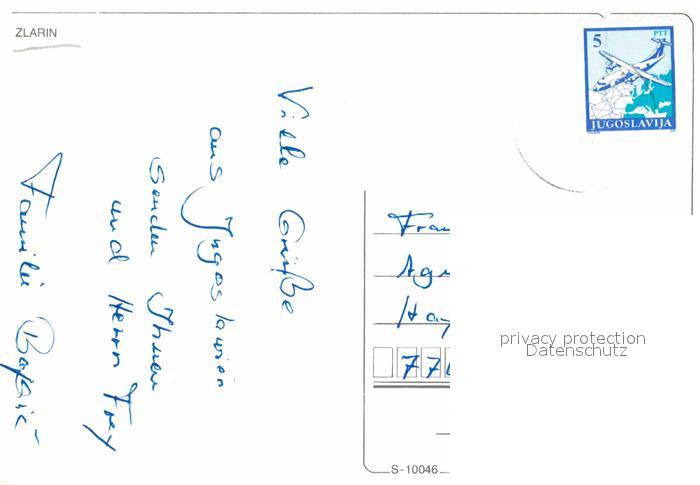 ZLARIN
5
PTT
JUGOSLAVIJA
Viele Grüße
aus Jugoslawien
senden Ihnen
und Herrn Frey
Familie
Frau
Ag
Hay
77
privacy protection
Datenschutz
S-10046